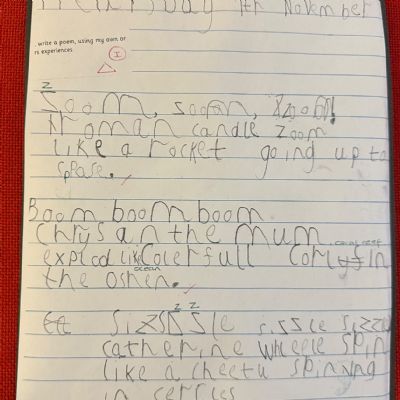 day 7th November
write a poem, using my own or
rs experiences.
I
Z
Zoom, sooon, Zzoom!
roman candle zoom
like a rocket going up to
spase.
Boom boom boom
Chrysanthe mum
coral reef
explod like Colerfull Corl in
ocean
the oshen.
z z
sizsszle sissle sizzle
catherine wheele spin
like a cheetu spinning
in sercles